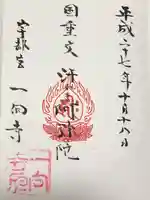 平成二十七年十月十八日
国重文 汗かき阿弥陀
宇都宮 一向寺